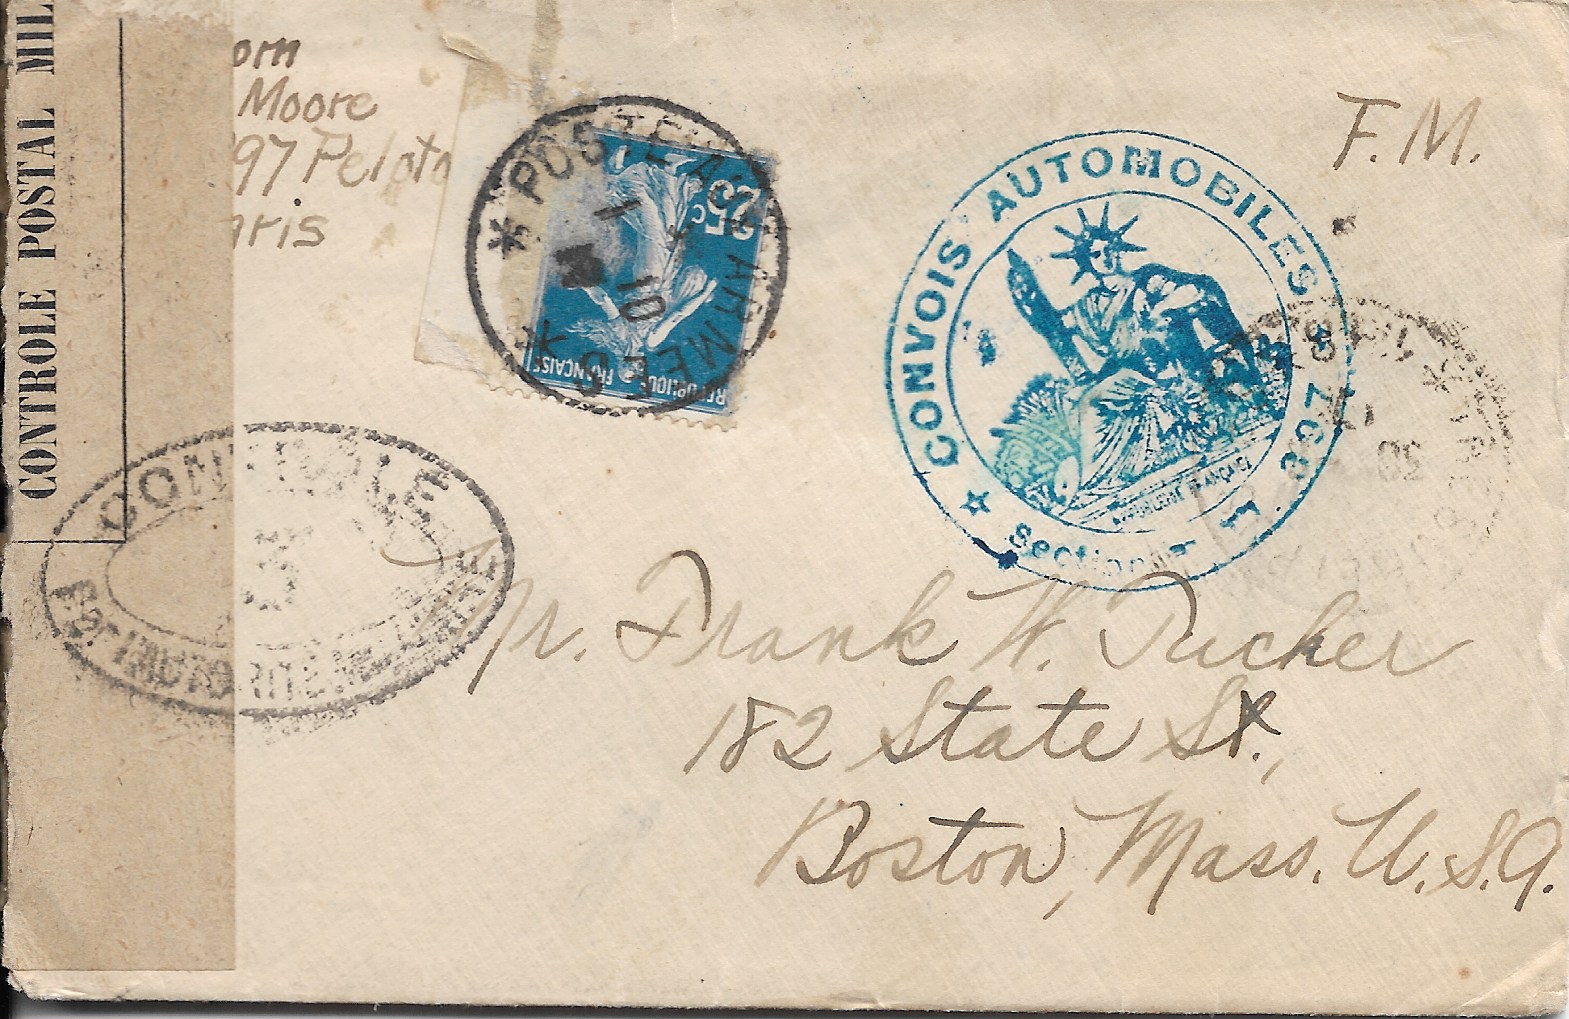 CONTROLE POSTAL MIL
orn
Moore
97 Peloto
aris
F.M.
* POSTE AUX ARMEES *
10
25c
REPUBLIQUE FRANÇAISE
CONVOIS AUTOMOBILES
Section
REPUBLIQUE FRANÇAISE
CONTROLE
Mr. Frank W. Tucker
182 State St.,
Boston, Mass. U.S.A.